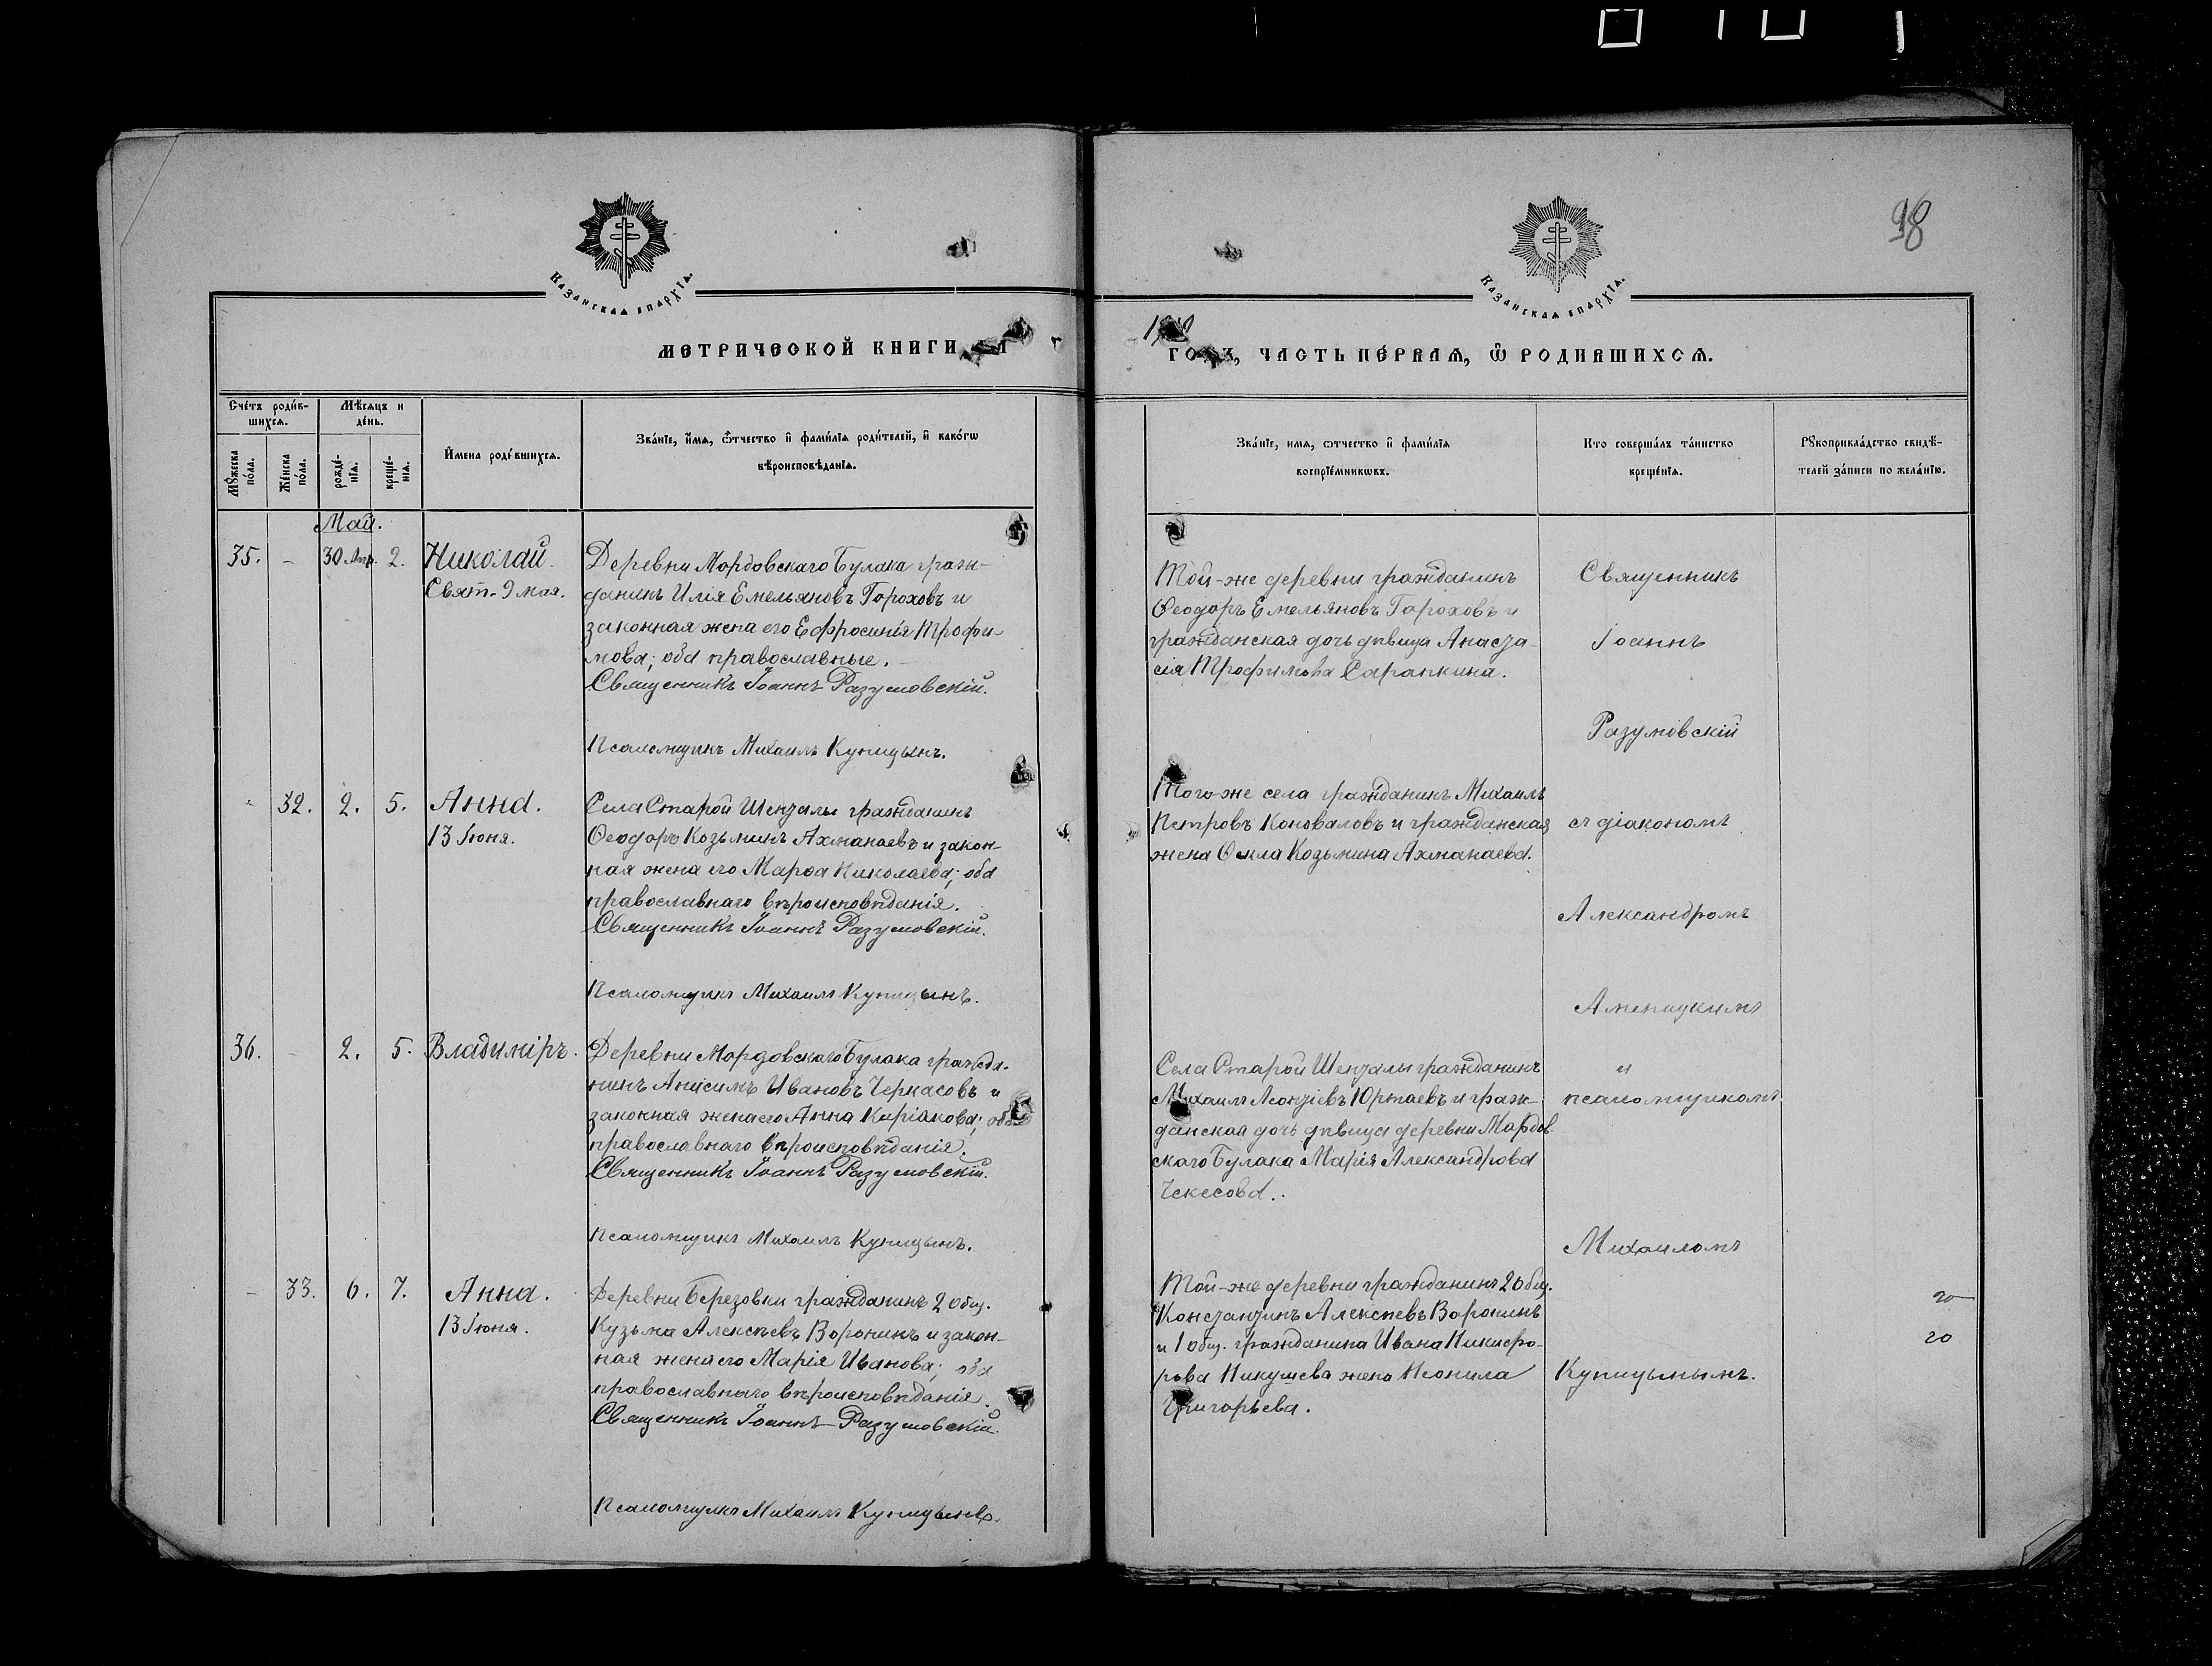 98
Казанская епархїѧ.
Казанская епархїѧ.
МЕТРИЧЕСКОЙ КНИГИ
ЧАСТЬ ПЕ́РВАѦ, Ѽ РОДИВШИХСѦ.
Сче́тъ роди́в-
шихсѧ.
Мѣ́сѧцъ и
де́нь.
Мꙋ́жеска
по́ла.
Же́нска
по́ла.
рожде́-
нїѧ.
креще́-
нїѧ.
И҆́мена роди́вшихсѧ.
Зва́нїе, и҆́мѧ, ѻ҆́тчество и҆ фами́лїѧ роди́телей, и҆ како́гѡ
вѣроисповѣ́данїѧ.
Зва́нїе, имѧ, ѻтчество и҆ фами́лїѧ
воспрїе́мникѡвъ.
Кто соверша́лъ та́инство
креще́нїѧ.
Рꙋкоприкла́дство свидѣ́-
телей за́писи по жела́нїю.
Май.
35. - 30 Апр. 2. Николай.
Свят. 9 мая.
Деревни Мордовскаго Булака граж-
данинъ Илія Емельяновъ Гороховъ и
законная жена его Ефросинія Трофи-
мова; оба православные.
Священникъ Іоаннъ Разумовскій.
Псаломщикъ Михаилъ Купицынъ.
Той-же деревни гражданинъ
Ѳеодоръ Емельяновъ Гороховъ и
гражданская дочь дѣвица Анаста-
сія Трофимова Сарапкина.
Священникъ
Іоаннъ
Разумовскій
- 32. 2. 5. Анна.
13 Іюня.
Села Старой Шенталы гражданинъ
Ѳеодоръ Козьминъ Ахманаевъ и закон-
ная жена его Марѳа Николаева; оба
православнаго вѣроисповѣданія.
Священникъ Іоаннъ Разумовскій.
Псаломщикъ Михаилъ Купицынъ.
Того-же села гражданинъ Михаилъ
Петровъ Коноваловъ и гражданская
жена Ѳекла Козьмина Ахманаева.
съ діакономъ
Александромъ
36. - 2. 5. Владиміръ.
Деревни Мордовскаго Булака гражда-
нинъ Анисимъ Ивановъ Черкасовъ и
законная жена его Анна Киріакова; оба
православнаго вѣроисповѣданія.
Священникъ Іоаннъ Разумовскій.
Псаломщикъ Михаилъ Купицынъ.
Села Старой Шенталы гражданинъ
Михаилъ Леонтіевъ Юртаевъ и граж-
данская дочь дѣвица деревни Мордов-
скаго Булака Марія Александрова
Чекесова.
и
псаломщикомъ
Михаиломъ
- 33. 6. 7. Анна.
13 Іюня.
Деревни Березовки гражданинъ 2 общ.
Кузьма Алексѣевъ Воронинъ и закон-
ная жена его Марія Иванова; оба
православнаго вѣроисповѣданія.
Священникъ Іоаннъ Разумовскій.
Псаломщикъ Михаилъ Купицынъ.
Той-же деревни гражданинъ 2 общ.
Константинъ Алексѣевъ Воронинъ
и 1 общ. гражданина Ивана Никифо-
рова Пикушева жена Неонила
Григорьева.
Купицынымъ.
20
20